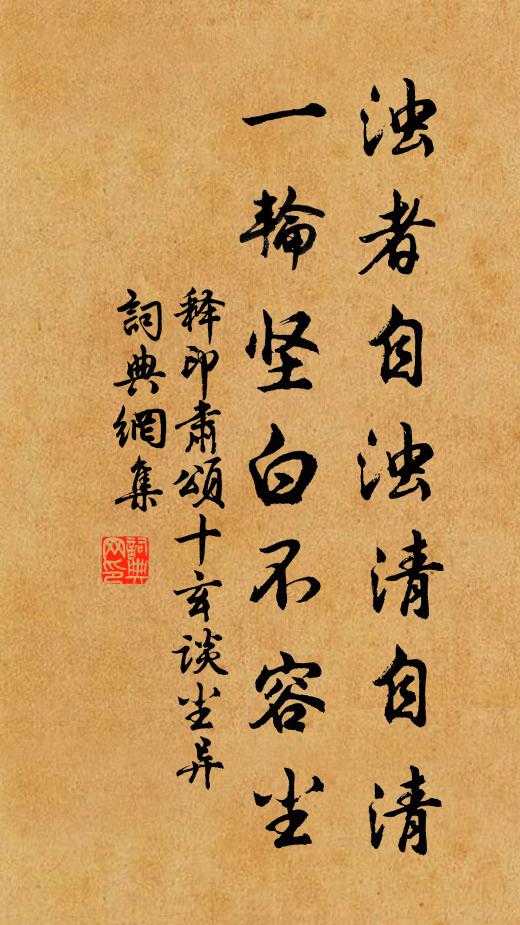 浊者自浊清自清
一輪坚白不容尘
释印肃頌十玄谈尘异
詞典網集
詞典网印